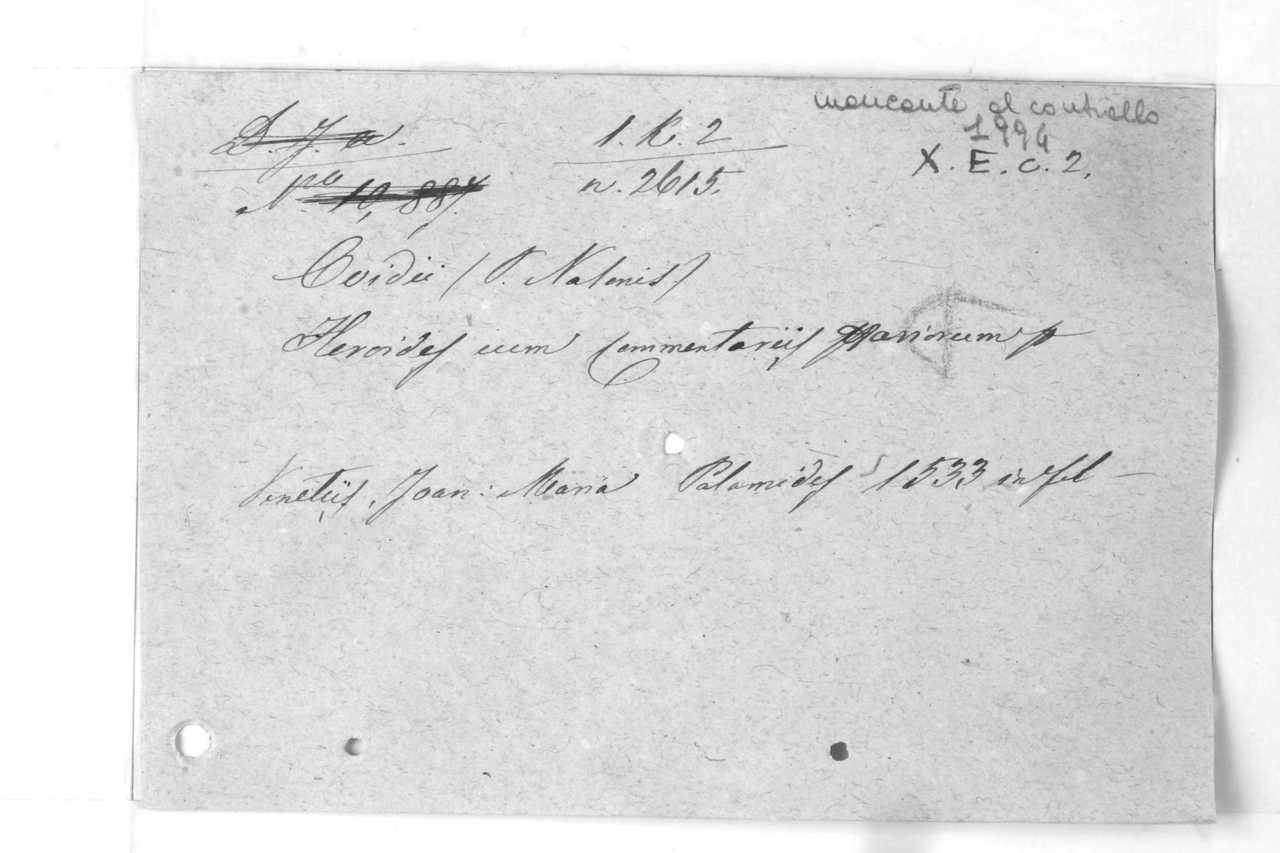 mancante al controllo
1994
D. J. a.
1. K. 2
X. E. c. 2.
N.ro 10,887
n. 2615.
Ovidii (P. Nasonis)
Heroides cum commentariis Variorum
Venetiis, Joan: Maria Palamides 1533 in fol